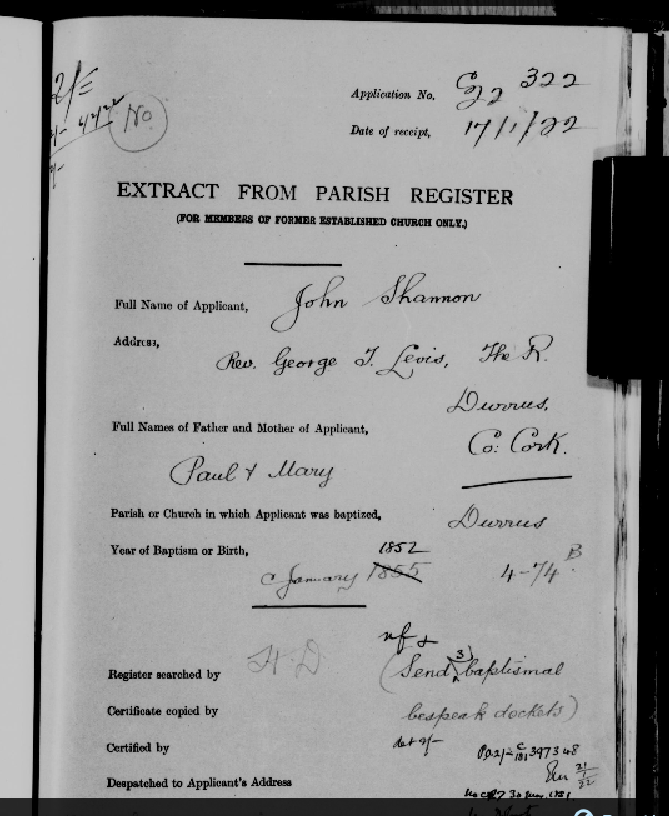 No.
Application No. C 22 322
Date of receipt, 17/1/22
EXTRACT FROM PARISH REGISTER
(FOR MEMBERS OF FORMER ESTABLISHED CHURCH ONLY.)
Full Name of Applicant, John Shannon
Address,
Rev. George T. Levis, The R.
Durrus,
Full Names of Father and Mother of Applicant,
Co: Cork.
Paul & Mary
Parish or Church in which Applicant was baptized, Durrus
Year of Baptism or Birth, 1852
c January 1855 4-74 B
nf &
Register searched by H.D (Send 3) baptismal
Certificate copied by bespeak dockets)
Certified by
Despatched to Applicant's Address